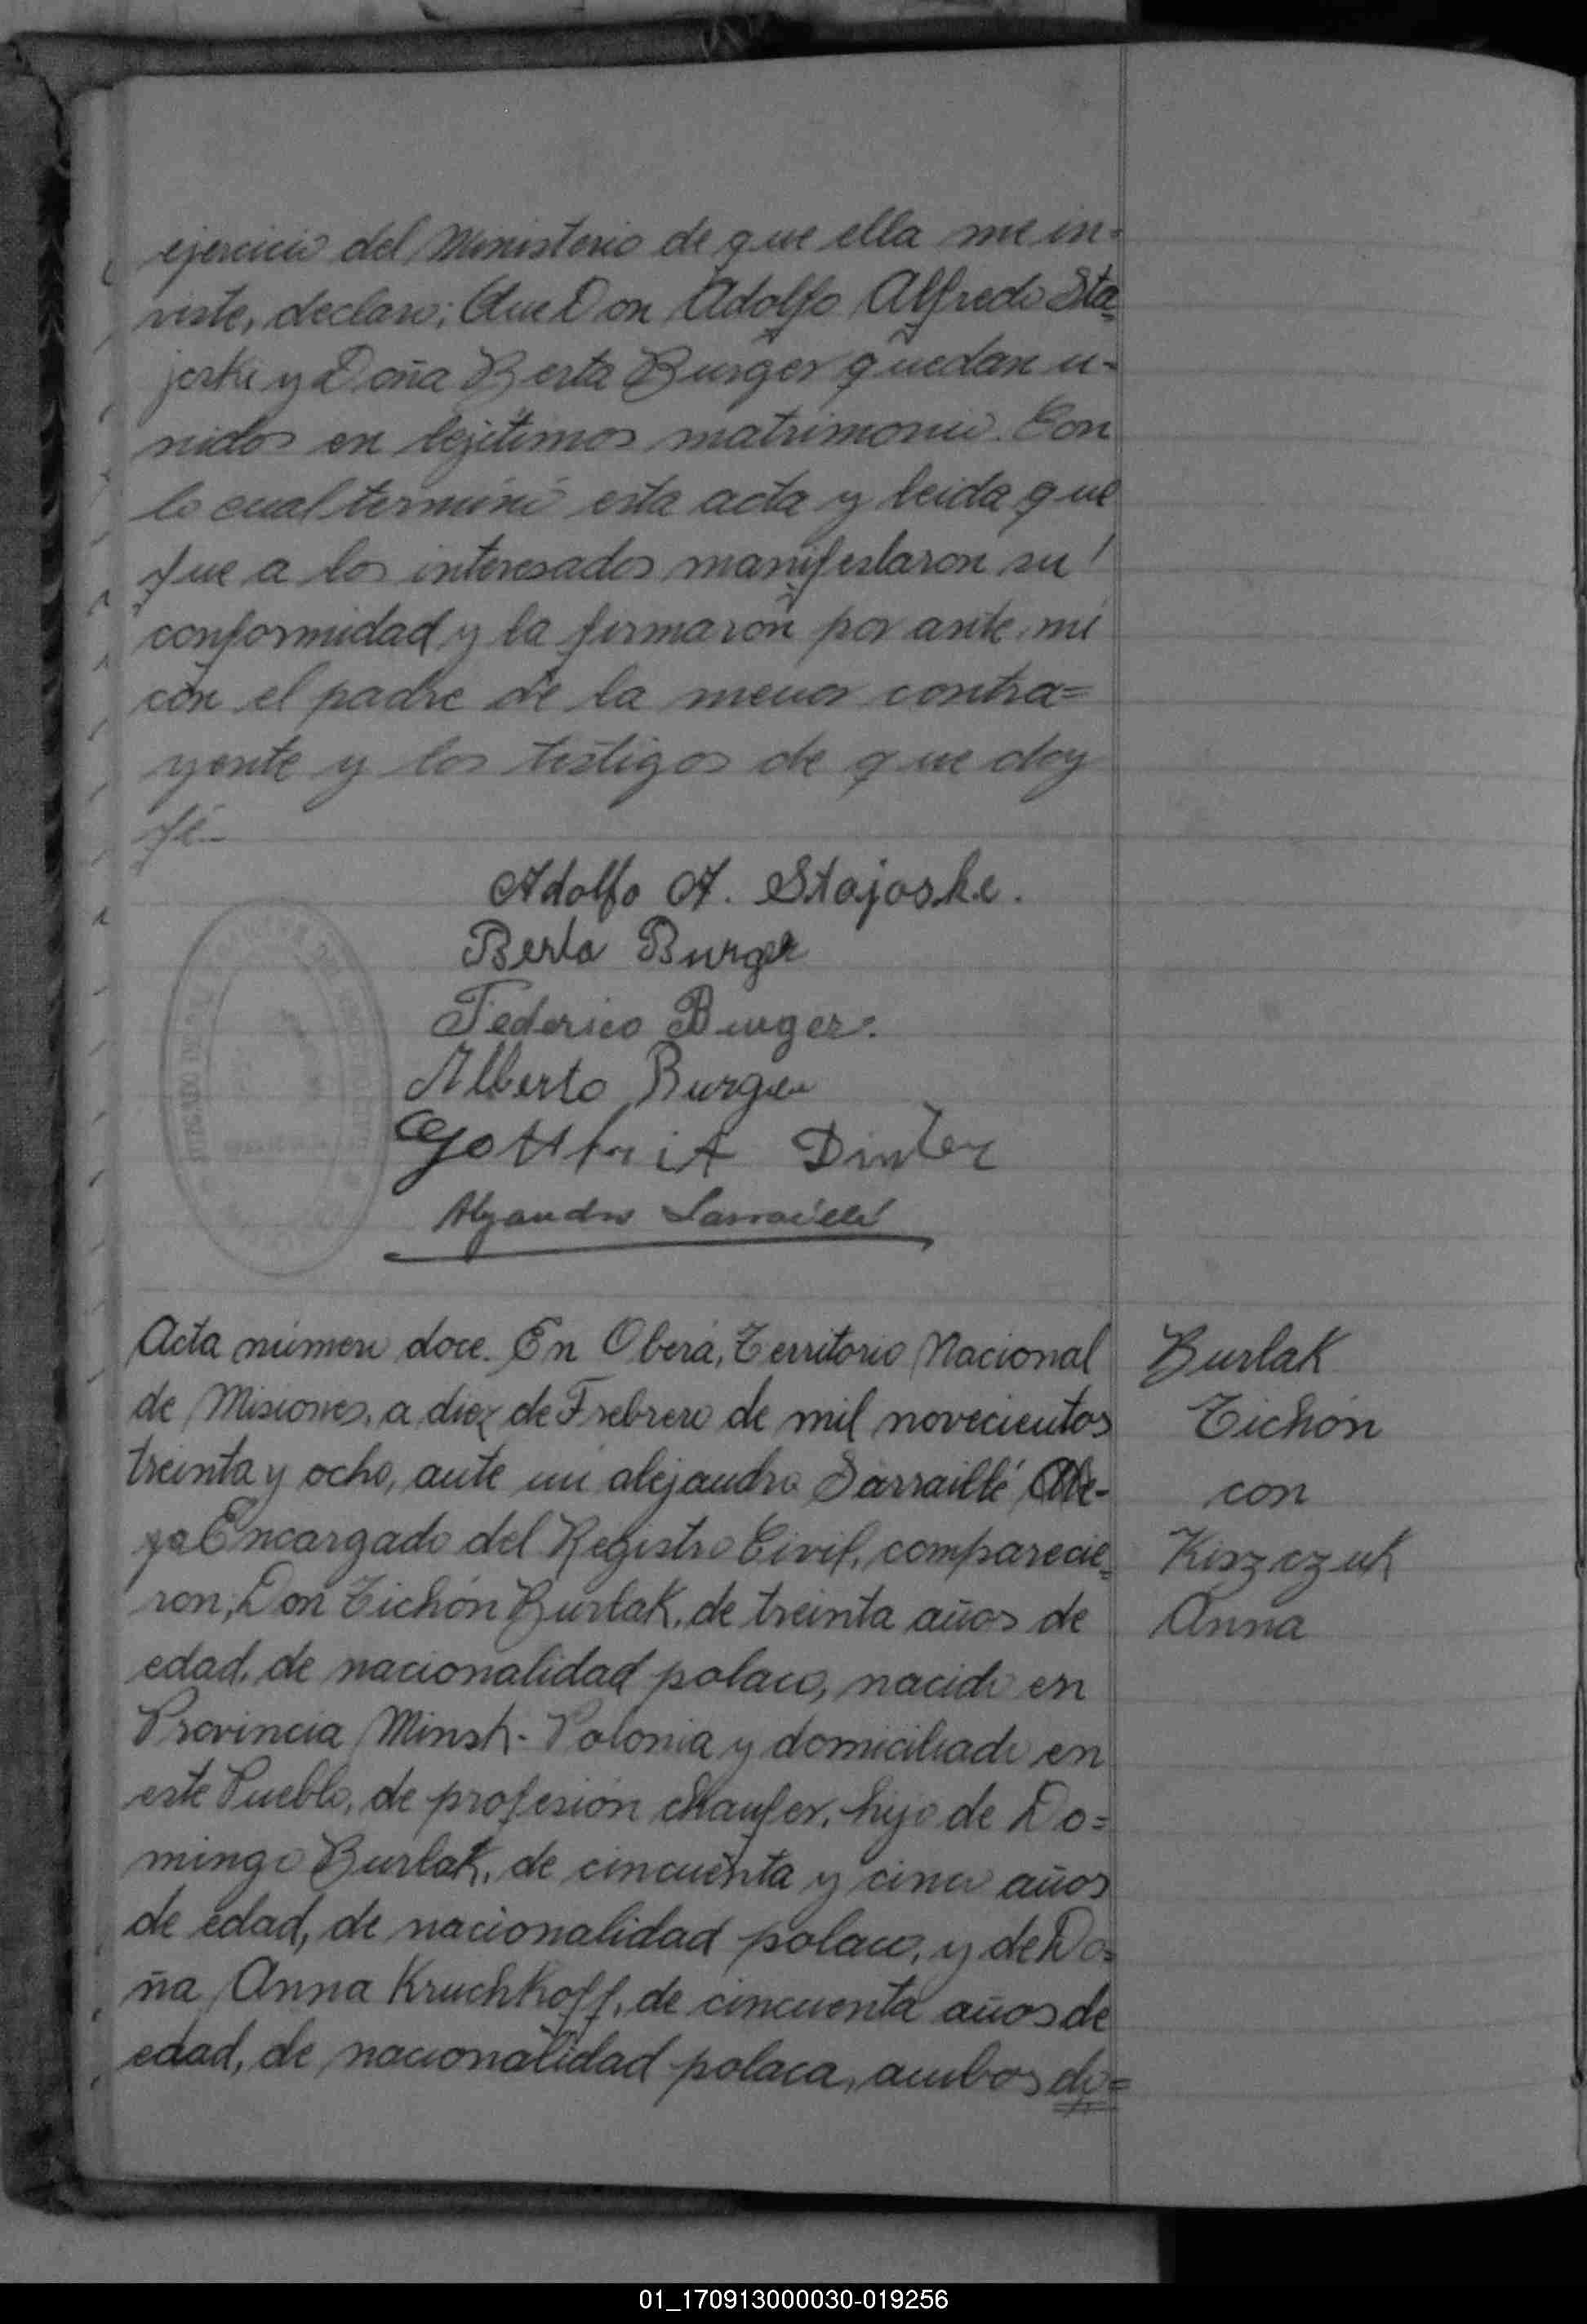 ejercicio del Ministerio de que ella me in-
viste, declaro; Que Don Adolfo Alfredo Sta=
joske y Doña Berta Burger quedan u-
nidos en lejítimos matrimonio. Con
lo cual terminó esta acta y leida que
fue a los interesados manifestaron su
conformidad y la firmaron por ante mí
con el padre de la menor contra=
yente y los testigos de que doy
fé.-
Adolfo A. Stajoske.
Berta Burger
Federico Burger.
Alberto Burger
Gottfrit Dinter
Alejandro Sarraillé
Acta número doce. En Oberá, Territorio Nacional
de Misiones, a diez de Frebrero de mil novecientos
treinta y ocho, ante mi alejandro Sarraillé
Encargado del Registro Civil, comparecie=
ron; Don Tichón Burlak, de treinta años de
edad, de nacionalidad polaco, nacido en
Provincia Minsk - Polonia y domiciliado en
este Pueblo, de profesión chaufer, hijo de Do=
mingo Burlak, de cincuenta y cinco años
de edad, de nacionalidad polaco, y de Do=
ña Anna Kruchkoff, de cincuenta años de
edad, de nacionalidad polaca, ambos do=
Burlak
Tichón
con
Kiszczuk
Anna
01_170913000030-019256